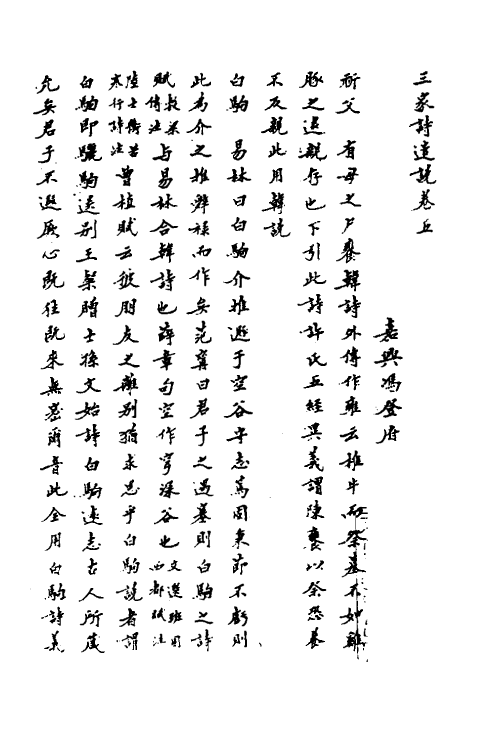 三家詩遺說卷五
嘉興馮登府
祈父　有母之尸饔韓詩外傳作雍云椎牛而祭墓不如雞
豚之逮親存也下引此詩許氏五經異義謂陳饔以祭恐養
不及親此用韓說
白駒　易林曰白駒介推遯于空谷守志篤固秉節不虧則
此為介之推辭祿而作矣范甯曰君子之過墓則白駒之詩
賦救萊傳注與易林合韓詩也薛章句空作穹深谷也文選班固西都賦注
陸士衡苦寒行詩注曹植賦云彼朋友之離別猶求思乎白駒說者謂
白駒即驪駒送別王粲贈士孫文始詩白駒遠志古人所箴
允矣君子不遐厥心既往既來無密爾音此全用白駒詩義